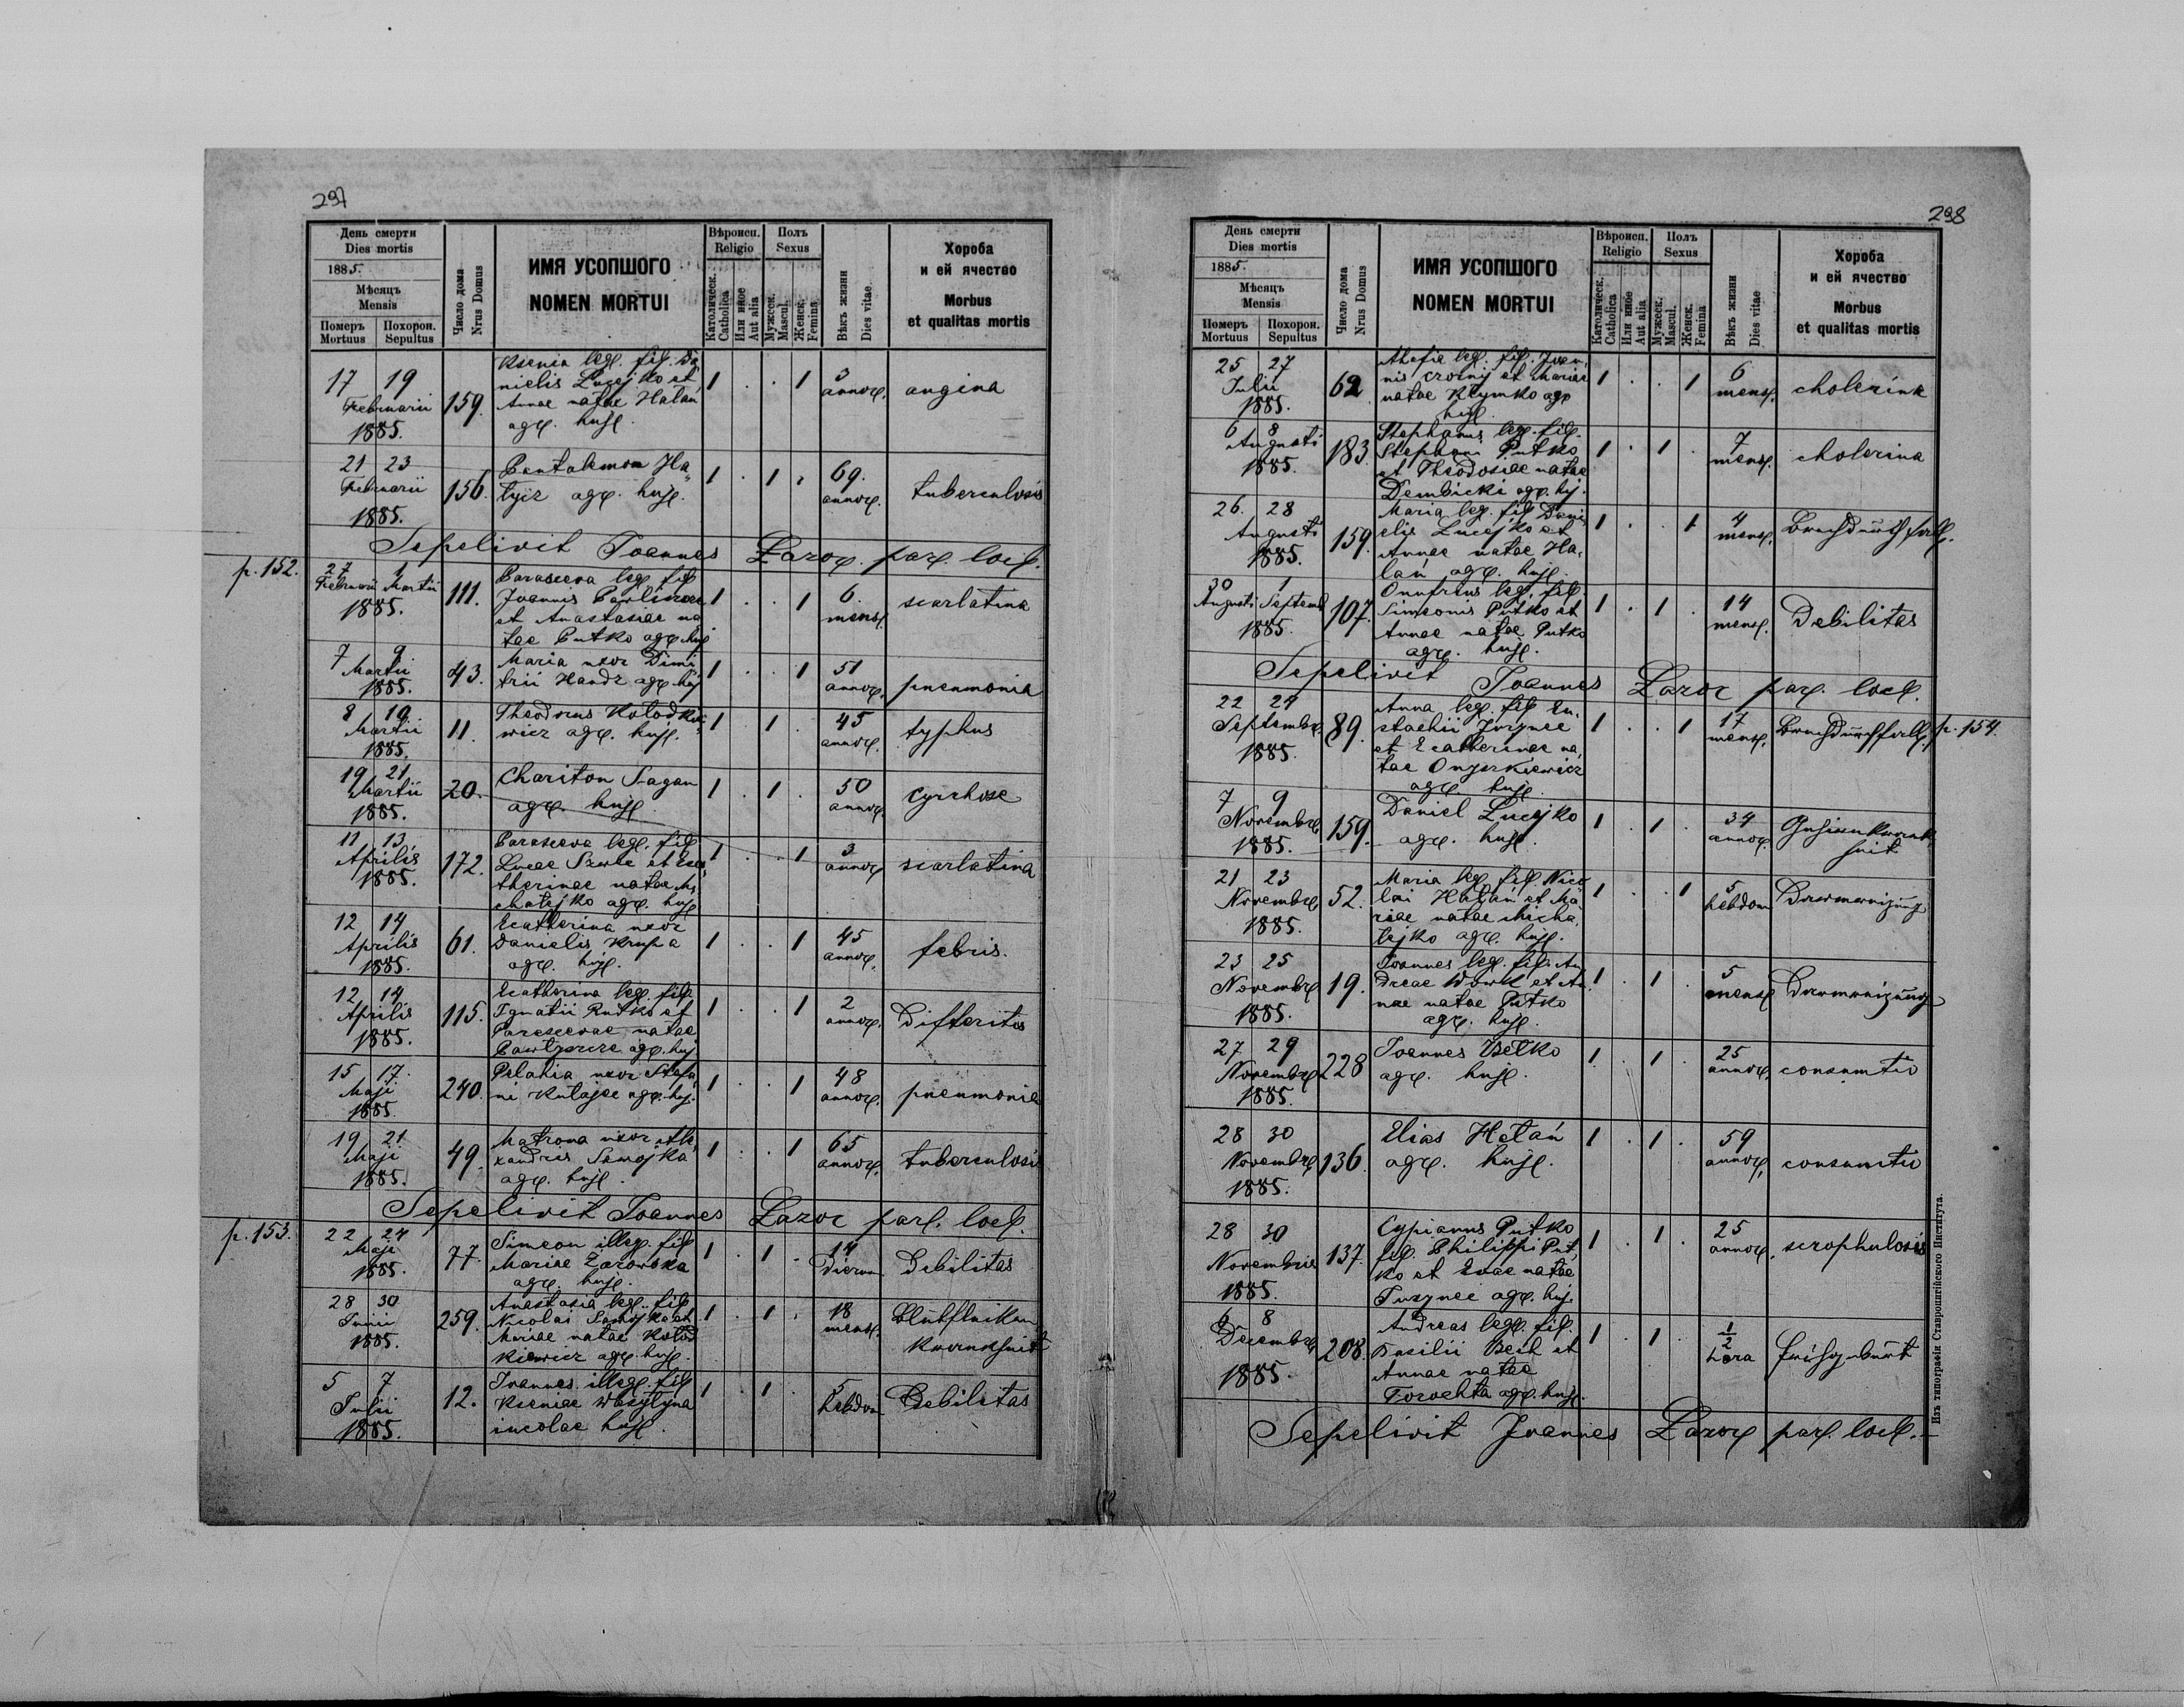 297
День смерти
Dies mortis
1885.
Мѣсяць
Mensis
Померъ
Mortuus
Похорон.
Sepultus
Число дома
Nrus Domus
ИМЯ УСОПШОГО
NOMEN MORTUI
Вѣроисп.
Religio
Католическ.
Catholica
Или иное
Aut alia
Полъ
Sexus
Мужеск.
Mascul.
Женск.
Femina
Вѣкъ жизни
Dies vitae
Хороба
и ей ячество
Morbus
et qualitas mortis
17 19
Februarii
1885.
159.
Ksenia leg. fil. Da
nielis Lucejko et
Annae natae Hatan
agr. huj.
1 . . 1
3
annor.
angina
21 23
Februarii
1885.
156.
Pantalemon Ha
tycz agr. huj.
1 . 1 .
69.
annor.
tuberculosis
Sepelivit Joannes Lazor. par. loc.
p. 152.
27 1
Februarii Martii
1885.
111.
Parasceva leg. fil
Joannis
et Anastasiae na
tae Putko agr. huj
1 . . 1
6.
mens.
scarlatina
7 9
Martii
1885.
43.
Maria uxor Dimi
trii Handz agr. huj
1 . . 1
51
annor.
pneumonia
8 10
Martii
1885.
11.
Theodorus Kolodkie
wicz agr. huj.
1 . 1 .
45
annor.
typhus
19 21
Martii
1885.
20.
Chariton Sagan
agr. huj.
1 . 1 .
50
annor.
cyrrhose
11 13
Aprilis
1885.
172.
Parasceva leg. fil
Lucae et Eca
therinae natae Mi
chatejko agr. huj
1 . . 1
3
annor
scarlatina
12 14
Aprilis
1885.
61.
Ecatherina uxor
Danielis Krupa
agr. huj.
1 . . 1
45
annor.
febris.
12 14
Aprilis
1885.
115.
Ecatherina leg. fil
Ignatii Putko et
Parascevae natae
agr. huj
1 . . 1
2
annor.
Difteritis
15 17.
Maji
1885.
240.
Pelahia uxor Stefa
ni Kutajce agr. huj.
1 . . 1
48
annor.
pneumonia
19 21
Maji
1885.
49.
Matrona uxor Ale
xandris Samojka
agr. huj.
1 . . 1
65
annor.
tuberculosis
Sepelivit Joannes Lazor par. loc.
p. 153.
22 24
Maji
1885.
77.
Simeon illeg. fil
Mariae Zarowska
agr. huj.
1 . 1 .
14
Dierum
Debilitas
28 30
Junii
1885.
259.
Anastasia leg. fil
Nicolai Samojka et
Mariae natae Kolod
kiewicz agr. huj.
1 . 1 .
18
mens.
5 7
Julii
1885.
12.
Joannes illeg. fil
Kseniae Wasylyna
incolae huj.
1 . 1 .
5
hebdom
Debilitas
298
День смерти
Dies mortis
1885.
Мѣсяць
Mensis
Померъ
Mortuus
Похорон.
Sepultus
Число дома
Nrus Domus
ИМЯ УСОПШОГО
NOMEN MORTUI
Вѣроисп.
Religio
Католическ.
Catholica
Или иное
Aut alia
Полъ
Sexus
Мужеск.
Mascul.
Женск.
Femina
Вѣкъ жизни
Dies vitae
Хороба
и ей ячество
Morbus
et qualitas mortis
25 27
Julii
1885.
62
leg. fil. Joan
nis et Mariae
natae Klymko agr
huj.
1 . . 1
6
mens.
cholerina
6 8
Augusti
1885.
183.
Stephanus leg. fil.
Stephani Putko
et Theodosiae natae
Dembicki agr. huj.
1 . 1 .
7
mens.
cholerina
26. 28
Augusti
1885.
159.
Maria leg. fil Dani
elis Lucejko et
Annae natae Ha
lań agr. huj.
1 . . 1
4
mens.
Brechdurchfall.
30 1
Augusti Septemb
1885.
107.
Onufrius leg. fil.
Simeonis Putko et
Annae natae Putko
agr. huj.
1 . 1 .
14
mens.
Debilitas
Sepelivit Joannes Lazor par. loc.
22 24
Septembr.
1885.
89.
Anna leg. fil Eu
stachii Jusynec
et Ecatherinae na
tae Onyszkiewicz
agr. huj.
1 . . 1
17
mens.
Brechdurchfall.
p. 154.
7 9
Novembr.
1885.
159.
Daniel Lucejko
agr. huj.
1 . 1 .
34
annor.
21 23
Novembr
1885.
52.
Maria leg. fil. Nico
lai Hatań et Ma
riae natae Micha
lejko agr. huj.
1 . . 1
5
hebdom
23 25
Novembr
1885.
19.
Joannes leg. fil. An
dreae Wowk et An
nae natae Putko
agr. huj.
1 . 1 .
5
mens.
27 29
Novembr
1885.
228
Joannes Betko
agr. huj.
1 . 1 .
25
annor.
consumtio
28 30
Novembr
1885.
136.
Elias Hatań
agr. huj.
1 . 1 .
59
annor.
consumtio
28 30
Novembris
1885.
137.
Cyprianus Putko
fil. Philippi Put
ko et Evae natae
Jusynec agr. huj.
1 . 1
25
annor.
scrophulosis
6 8
Decembr
1885.
208.
Andreas leg. fil.
Basilii Bech et
Annae natae
Torochta agr. huj.
1 . 1 .
1/2
hora
Sepelivit Joannes Lazor par. loc.
Изъ типографіи Ставропигійского Института.